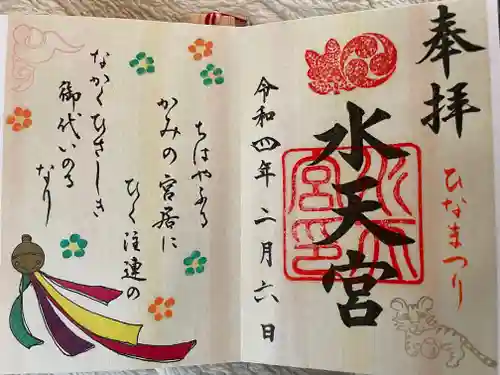 奉拝
ひなまつり
水天宮
令和四年二月六日
ちはやふる
かみの宮居に
ひく注連の
なかくひさしき
御代いのる
なり